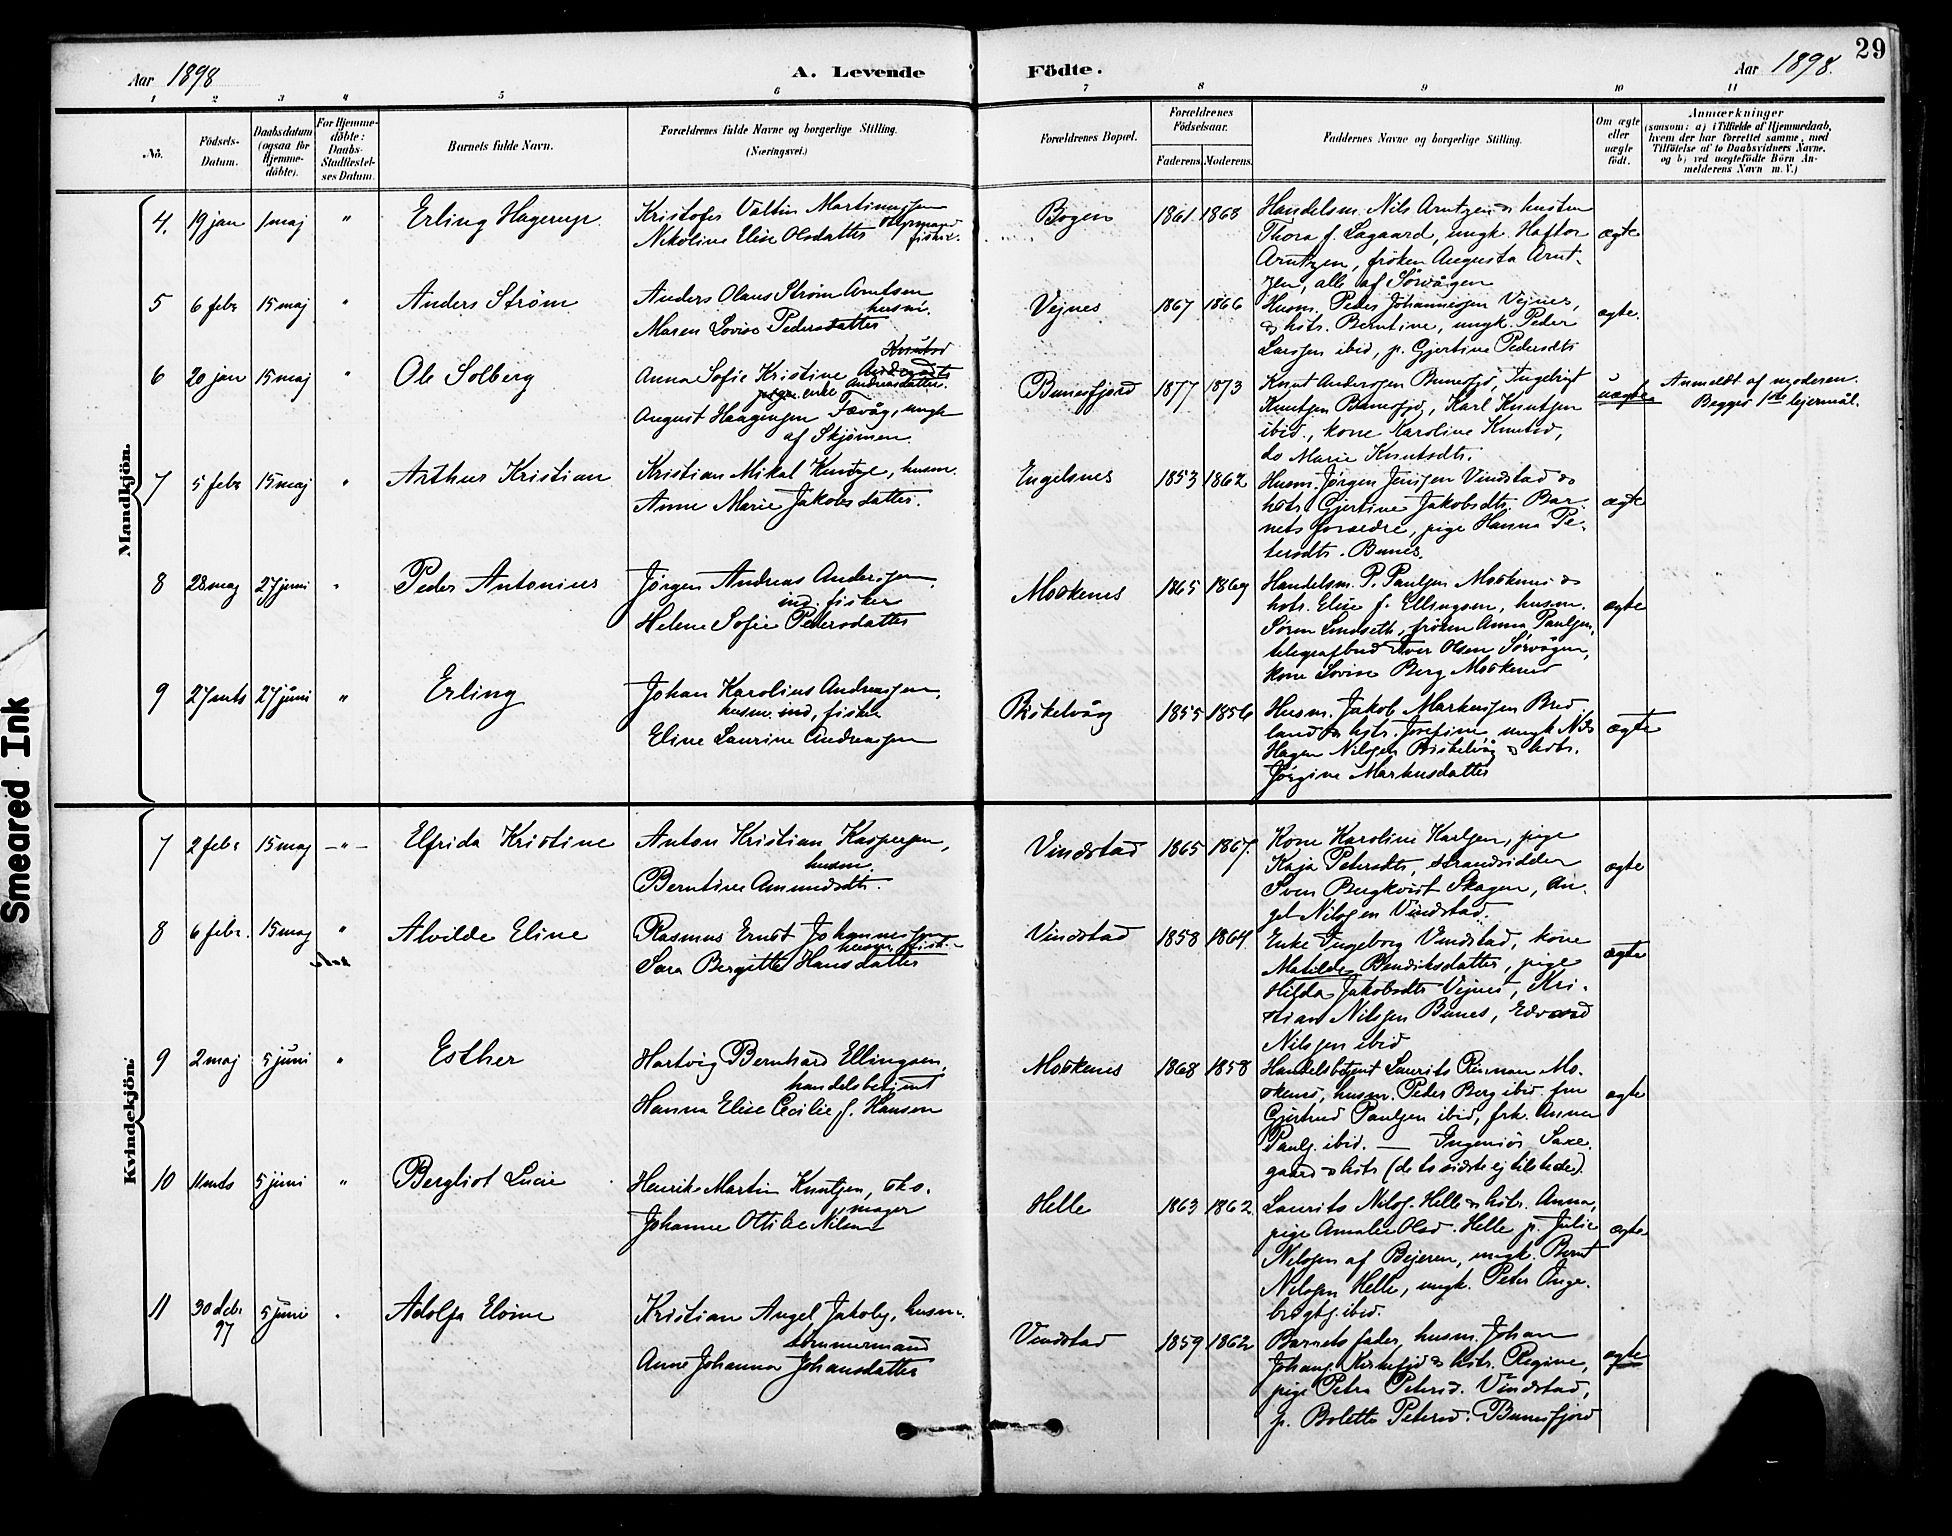 29
Aar 1898
A. Levende Födte.
Aar 1898.
1 2 3 4 5 6 7 8 9 10 11
No.
Födsels-Datum.
Daabsdatum (ogsaa for Hjemme-döbte).
For Hjemme-döbte: Daabs-Stadfæstel-ses Datum.
Barnets fulde Navn.
Forældrenes fulde Navne og borgerlige Stilling. (Næringsvei.)
Forældrenes Bopæl.
Forældrenes Födselsaar.
Faderens. Moderens.
Faddernes Navne og borgerlige Stilling.
Om ægte eller uægte födt.
Anmærkninger
(saasom: a) i Tilfælde af Hjemmedaab, hvem der har forrettet samme, med Tilföielse af to Daabsvidners Navne, og b) ved uægtefödte Börn Anmelderens Navn m. V.)
Mandkjön.
4. 19 jan 1 maj " Erling Hagerup.
Kristofer Valtin Martinussen
Nikoline Elise Olsdatter
fisker.
Bogen 1861 1868
Handelsm. Nils Arntzen & hustru
Thora f. Lagaard, ungk. Haftor
Arntzen, frøken Augusta Arnt-
zen, alle af Sørvågen
ægte
5 6 febr 15 maj " Anders Strøm
Anders Olaus Strøm Arntsen
husm.
Maren Lovise Pedersdatter
Vejnes 1867 1866
Husm. Peder Johannessen Vejnes,
& hstr. Berntine, ungk. Peder
Larssen ibid, p. Gjertine Pedersdtr
ægte.
6 20 jan 15 maj " Ole Solberg
Anna Sofie Kristine
Andreasdatter.
enke
August Haagensen Fævåg, ungk
af Skjomen.
Bunesfjord 1877 1873
Knut Anderssen Bunesfjd, Ingebrigt
Knutsen Bunesfjd, Karl Knutsen
ibid., kone Karoline Knutsd,
do Marie Knutsdtr.
uægte
Anmeldt af moderen.
Begges 1ste lejermål.
7 5 febr 15 maj " Arthur Kristian
Kristian Mikal, husm.
Anne Marie Jakobsdatter.
Engelsnes 1853 1862
Husm. Jørgen Jenssen Vindstad &
hstr Gjertine Jakobsdtr. Bar-
nets forældre, pige Hanna Pe-
tersdtr. Bunes.
ægte
8 28 maj 27 juni " Peder Antonius
Jørgen Andreas Anderssen
ind. fisker
Helene Sofie Pedersdatter
Moskenes 1865 1869
Handelsm. P. Paulsen Moskenes &
hstr. Elise f. Ellingsen, husm.
Søren Lindseth, frøken Anna Paulsen,
telegrafbud Iver Olsen Sørvågen,
kone Lovise Berg Moskenes
ægte
9 27 mts 27 juni " Erling
Johan Karolius Andreassen,
husm. ind, fisker
Eline Laurine Andreassen
Biskelvåg 1855 1856
Husm. Jakob Markussen Bred
land & hstr. Josefine, ungk Nils
Hagen Nilssen Biskelvåg & hstr.
Jørgine Markusdatter
ægte
Kvindekjön.
7 2 febr 15 maj -"- Elfrida Kristine
Anton Kristian Kaspersen,
husm.
Berntine Amundsdtr.
Vindstad 1865 1867.
Kone Karoline Karlsen, pige
Kaja Petersdtr, strandsidder
Sven Bergkvist Skagen, An-
gel Nilssen Vindstad.
ægte
8 6 febr. 15 maj " Alvilde Eline
Rasmus Ernst Johannessen
husm. fisker
Sara Bergitte Hansdatter
Vindstad 1858 1864
Enke Ingeborg Vindstad, kone
Matilde Bendiksdatter, pige
Hilda Jakobsdtr Vejnes, Kri-
stian Nilssen Bunes, Edvard
Nilssen ibid
ægte
9 2 maj 5 juni " Esther
Hartvig Bernhard Ellingsen,
handelsbetjent
Hanna Elise Cecilie f. Hansen
Moskenes 1868 1858
Handelsbetjent Laurits Mo-
skenes, husm. Peder Berg ibid. fru
Gjertrud Paulsen ibid, frk. Anna
Pauls. ibid. — Ingeniør Saxe-
gaard & hstr (de to sidste ej tilstede).
ægte
10 11 mts 5 juni " Bergliot Lucie
Henrik Martin Knutsen, sko-
mager
Johanne Ottilie Nilsen
Helle 1863 1862
Laurits Nilss. Helle & hstr. Anna,
pige Amalie Olsd. Helle p. Julie
Nilssen af Bejeren, ungk. Bernt
Nilssen Helle, ungk. Peter Inge-
brigts. ibid.
ægte
11 30 debr 97 5 juni " Adolfa Elvine
Kristian Angel Jakobs, husm.
tømmermand
Anne Johanna Johansdatter
Vindstad 1859 1862
Barnets fader, husm. Johan
Johans. Kirkefjd & hstr. Regine,
pige Petra Petersd. Vindstad,
p. Bolette Petersd. Bunesfjord
ægte
Smeared Ink